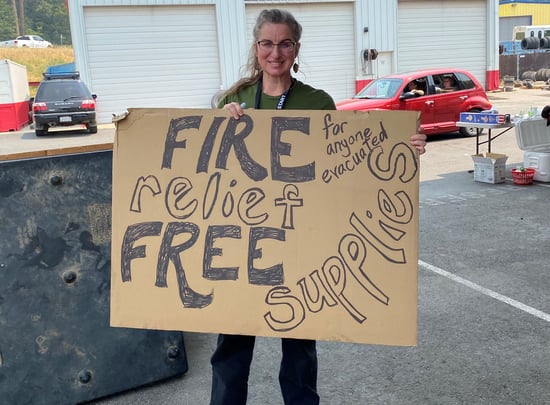 FIRE
for
anyone
evacuated
relief
FREE
supplies